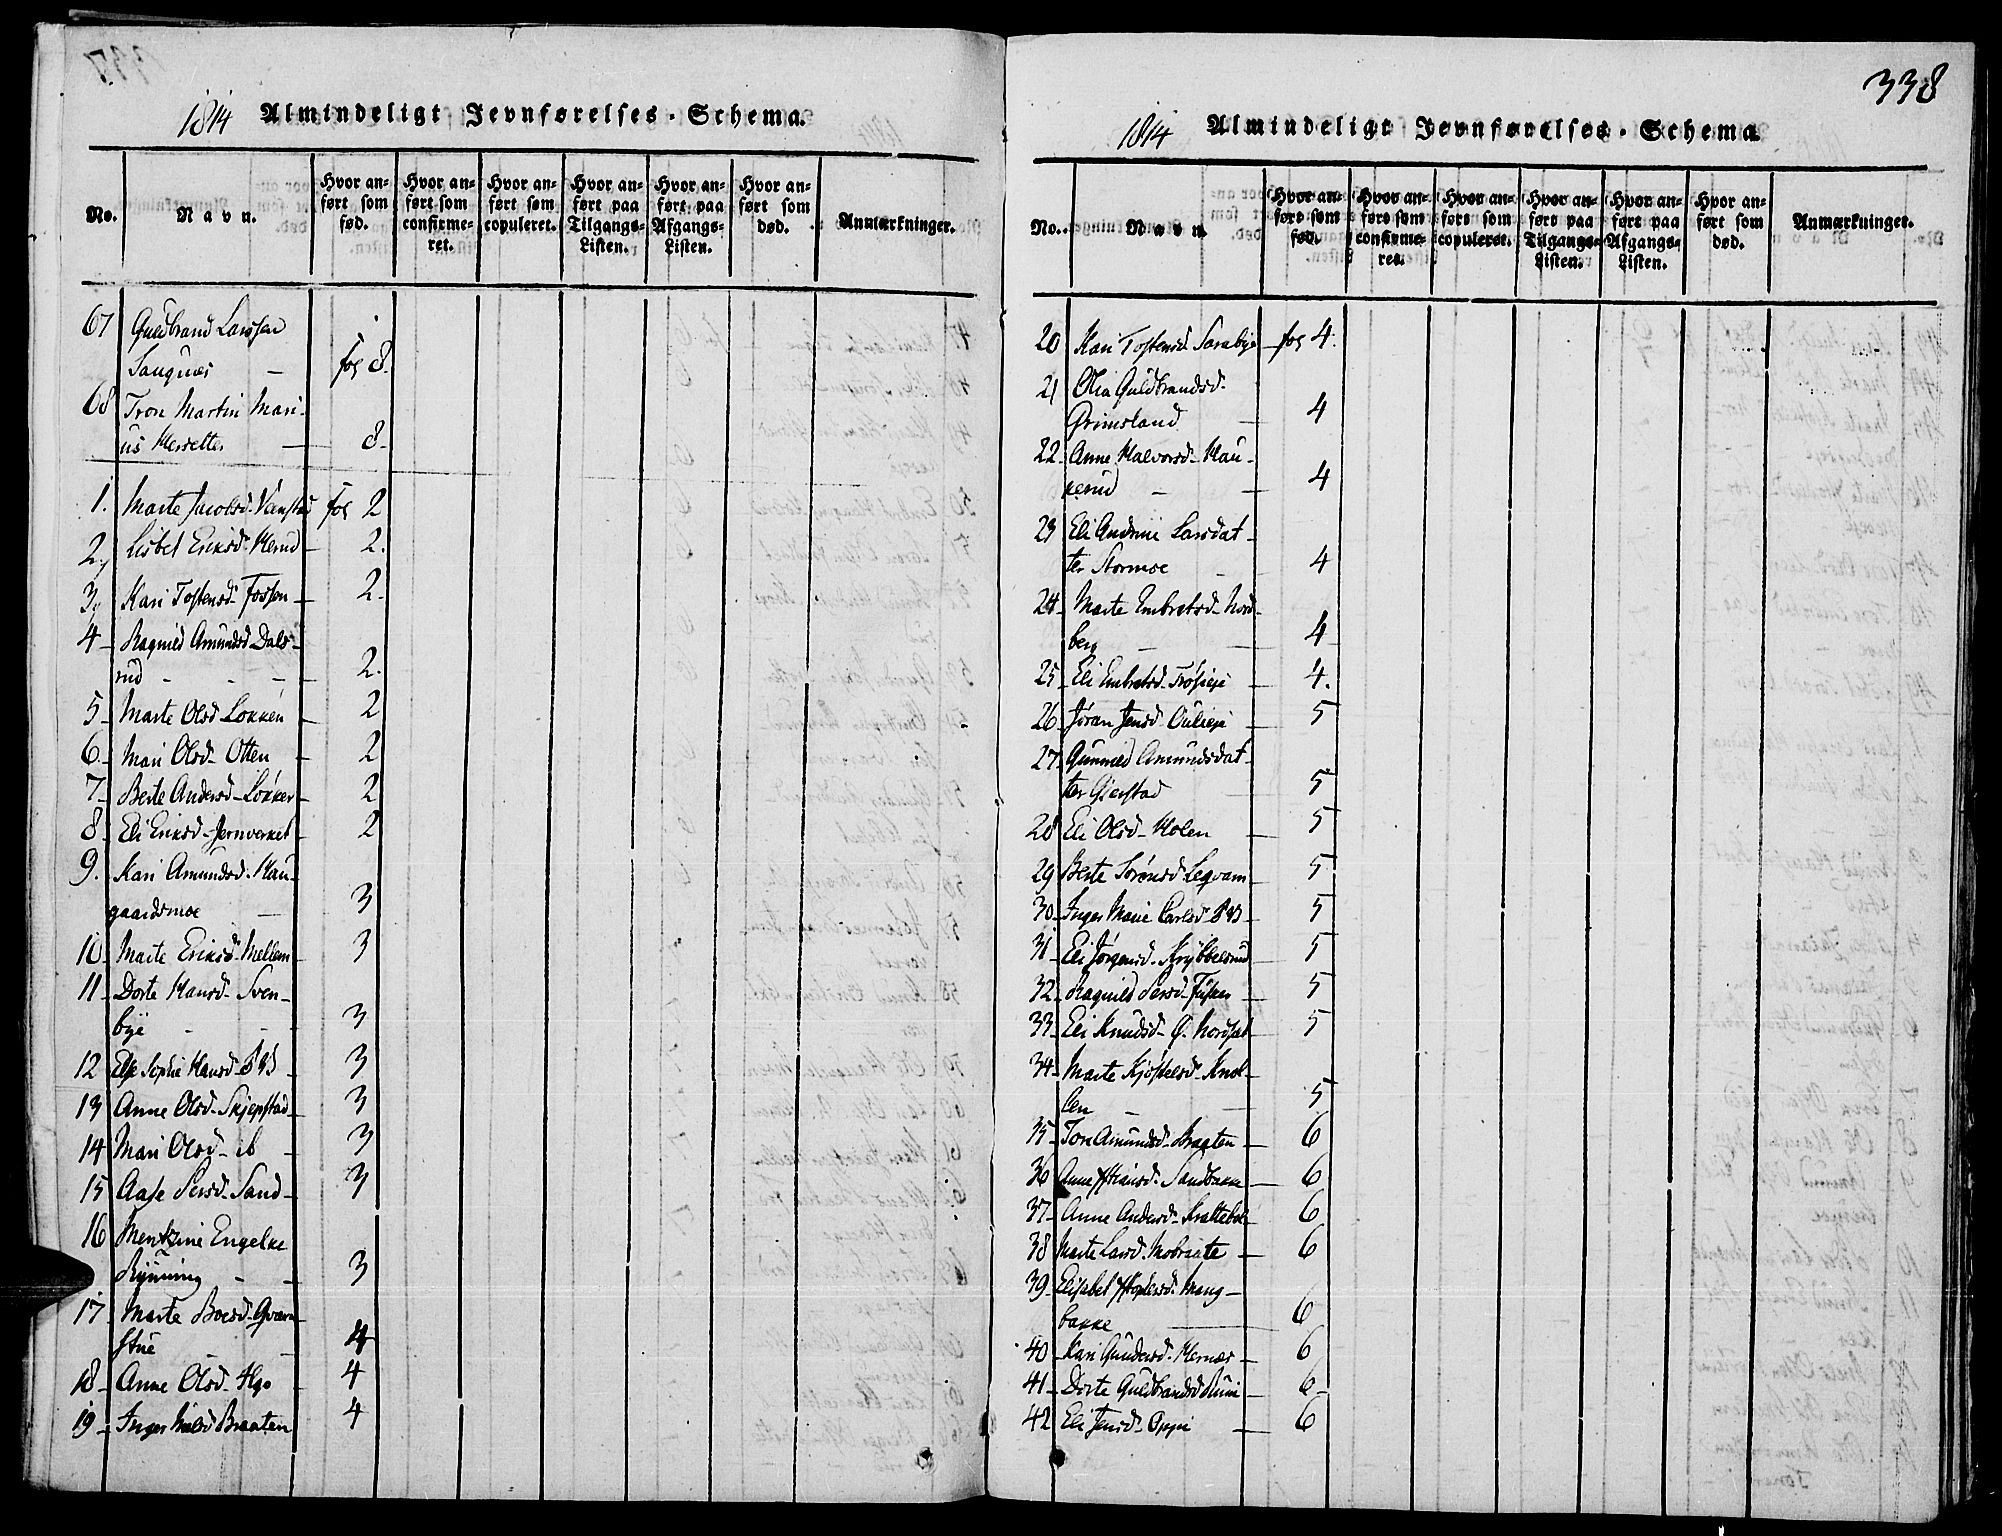 1814 Almindeligt Jevnførelses-Schema.
No.
Navn.
Hvor anført som fød.
Hvor anført som confirmeret.
Hvor anført som copuleret.
Hvor anført paa Tilgangs-Listen.
Hvor anført paa Afgangs-Listen.
Hvor anført som død.
Anmærkninger.
67 Guldbrand Larssen
Saugnæs – fol 8.
68 Tron Martin Mari-
us Mersetter – 8.
1. Marte Jacobsd. Vanstad fol 2
2, Lisbet Eriksd. Herud – 2.
3, Kari Tostensd. Fossen – 2.
4 – Ragnild Amundsd Dals-
rud – – – 2.
5 – Marte Olsd Løkken – 2
6 – Mari Olsd. Otten – 2
7 – Berte Andersd – Løkker – 2
8 – Eli Eriksd – Jernverket – 2
9. Kari Amundsd. Hau-
gaardsmoe – 3
10 – Marte Eriksd. Mellem – 3
11 – Dorte Hansd. Sven-
bye – – 3
12 Else Sophie Hansd – 3
13 Anne Olsd – Skjepstad – 3
14 Mari Olsd – ib – 3
15 Aase Persd. Sand – 3
16 Mentzine Engelke
Rynning – – 3
17 – Marte Boesd. Qværn-
stue – – 4
18 – Anne Olsd – Algo – 4
19 – Inger Nilsd Braaten 4
338
1814 Almindeligt Jevnførelses-Schema
No.
Navn
Hvor anført som fød.
Hvor anført som confirmeret.
Hvor anført som copuleret.
Hvor anført paa Tilgangs-Listen.
Hvor anført paa Afgangs-Listen.
Hvor anført som død.
Anmærkninger.
20 Kari Tostensd. Sarabye – fol 4.
21 Olia Guldbrandsd.
Grimsland – 4
22. Anne Halvorsd – Hau-
kerud – – 4
23 Eli Andrine Larsdat-
ter Stormoe – 4
24 – Marte Embretsd – Nord-
berg – – 4
25 – Eli Embretsd – – 4.
26 – Jøran Jensd – – 5
27 – Gunnild Amundsdat-
ter Gierstad – 5
28 Eli Olsd – Holen – 5
29 Berte Sørensd Leqvam – 5
30 – Inger Marie Carlsd – 5
31 – Eli Jørgensd – Krybbelsrud 5
32 – Ragnild Persd – Fusker – 5
33 – Eli Knudsd – Ø. Nordset 5
34 – Marte Kjøstelsd – Knol-
len – – 5
35 – Tore Amundsd – Braaten – 6
36 Anne Hansd – Sandbakke – 6
37 – Anne Andersd – Krattebøl 6
38 Marte Larsd. Mobraate – 6
39 – Elisabet – Mang-
bakke – 6
40 – Kari Gundersd. Hernæs – 6
41 – Dorte Guldbrandsd Ruui – 6 –
42 – Eli Jensd – Oppi – 6